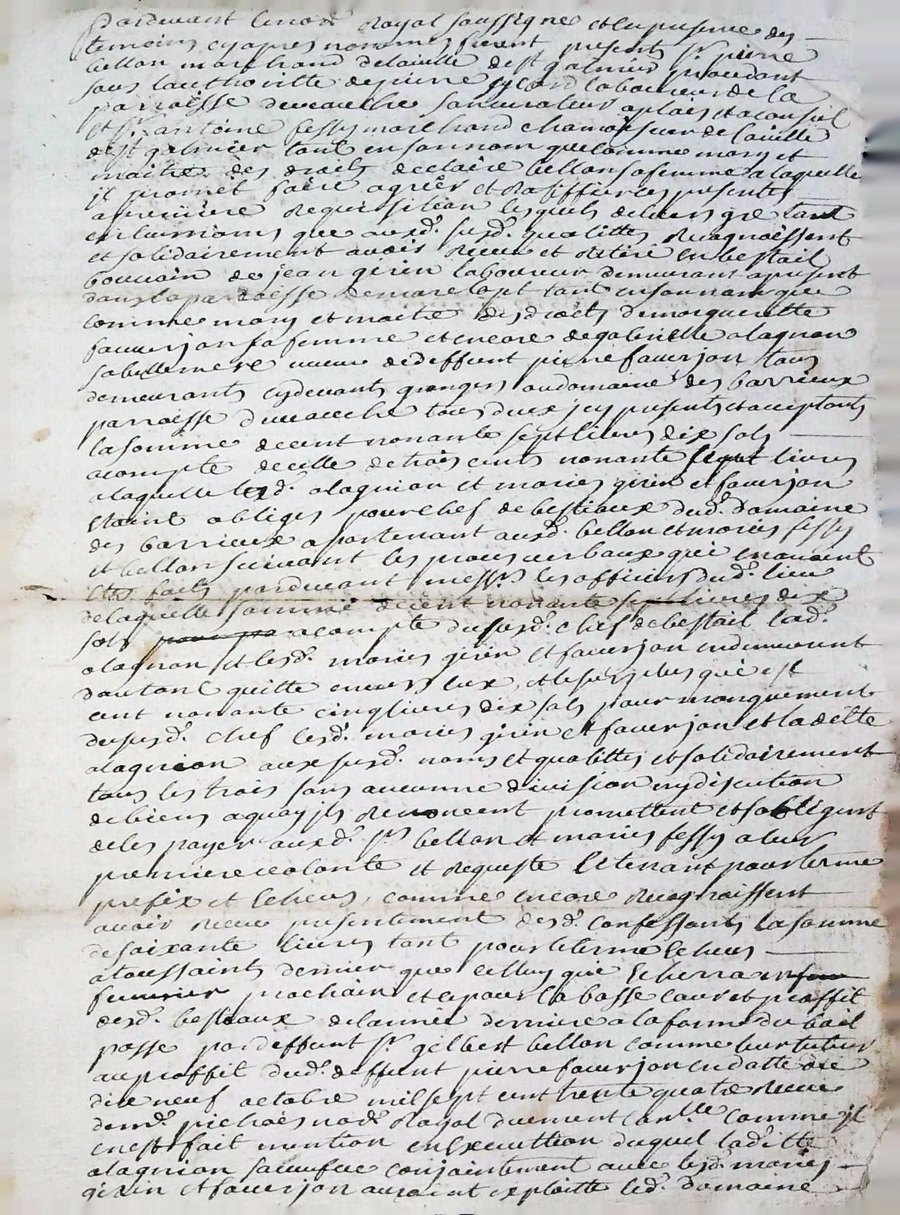 Pardevant le no.re Royal soussigné et en presence des
temoins cy apres nommés furent presents s.r pierre
bellon marchand de la ville de s.t galmier procedant
sous l'authorité de pierre sicard laboureur de la
parroisse de veauche son curateur a plais et a conseil
et s.r antoine fessy marchand chamoiseur de la ville
de s.t galmier tant en son nom que comme mary et
maitre des droits de claire bellon sa femme a laquelle
il promet faire agréer et Ratiffier ces presentes
a premiere Requisition lesquels de leurs gré tant
en leurs noms que ausd. susd. qualittés Recognoissent
et solidairement avoir Receu et Retiré en bestail
bouvain de jean girin laboureur demeurant a present
dans la parroisse de marclopt tant en son nom que
comme mary et maitre des droits de margueritte
faverjon sa femme et encore de gabrielle alagnon
sa bellemere veuve de deffunt pierre faverjon tous
demeurants cydevant grangers au domaine des barrieux
parroisse de veauche tous deux icy presents et acceptants
la somme de cent nonante sept livres dix sols
acompte de celle de trois cents nonante livres
a laquelle lesd. alagnion et mariés girin et faverjon
etoint obligés pour chef de bestiaux dud. domaine
des barrieux apartenant ausd. bellon et mariés fessy
et bellon suivant les procès verbaux qui en avoient
etés faits pardevant mess.rs les officiers dud. lieu
de laquelle somme de cent nonante sept livres dix
sols acompte du susd. chef de bestail lad.
alagnon et lesd. mariés girin et faverjon en demeurent
d'autant quitte envers eux, et le surplus qui est
cent nonante cinq livres dix sols pour manquement
du susd. chef lesd. mariés girin et faverjon et laditte
alagnion aux susd. noms et qualittés et solidairement
tous les trois sans aucune division ny discution
de biens a quoy ils Renoncent promettent et s'obligent
de les payer ausd. s.r bellon et mariés fessy a leur
premiere volonté et Requeste le tenant pour terme
prefix et echeus, comme encore Recognoissent
avoir Receu presentement desd. confessants la somme
de soixante livres tant pour le terme echeus
a toussaints dernier que celluy que echerra
fevrier prochain et ce pour la basse cour et proffit
desd. bestiaux de l'année derniere a la forme du bail
passé par deffunt s.r gilbert bellon comme leur tuteur
au proffit dud. deffunt pierre faverjon en datte du
dix neuf octobre mil sept cent trente quatre Receu
de m.e no.re Royal duement comme il
en est fait mention en execution duquel laditte
alagnion sa veufve conjointement avec lesd. mariés
girin et faverjon auroint exploitté led. domaine